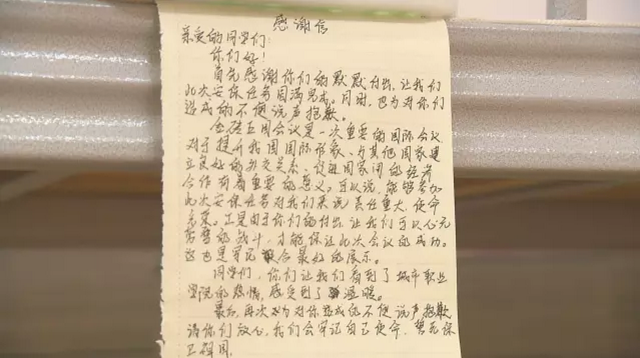 感谢信
亲爱的同学们:
你们好!
首先感谢你们的默默付出,让我们
此次安保任务圆满完成。同时,也为对你们
造成的不便说声抱歉。
金砖五国会议是一次重要的国际会议
对于提升我国国际形象、与其他国家建
立良好的外交关系、促进国家间的经济
合作有着重要的意义。可以说,能够参加
此次安保任务对我们来说责任重大,使命
光荣。正是由于你们的付出,让我们可以心无
旁骛的战斗,才能保证此次会议的成功。
这也是军民融合最好的展示。
同学们,你们让我们看到了城市职业
学院的热情,感受到了温暖。
最后,再次为对你造成的不便说声抱歉
请你们放心,我们会牢记自己使命,誓死保
卫祖国。